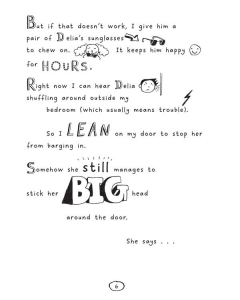 But if that doesn't work, I give him a
pair of Delia's sunglasses
to chew on. It keeps him happy
for HOURS.
Right now I can hear Delia
shuffling around outside my
bedroom (which usually means trouble).
So I LEAN on my door to stop her
from barging in.
Somehow she still manages to
stick her BIG head
around the door.
She says . . .
6